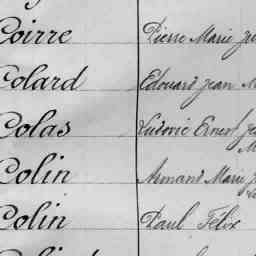 Coirre Pierre Marie
Colard Edouard Jean
Colas Ludovic Ernest
Colin Armand Marie
Colin Paul Félix